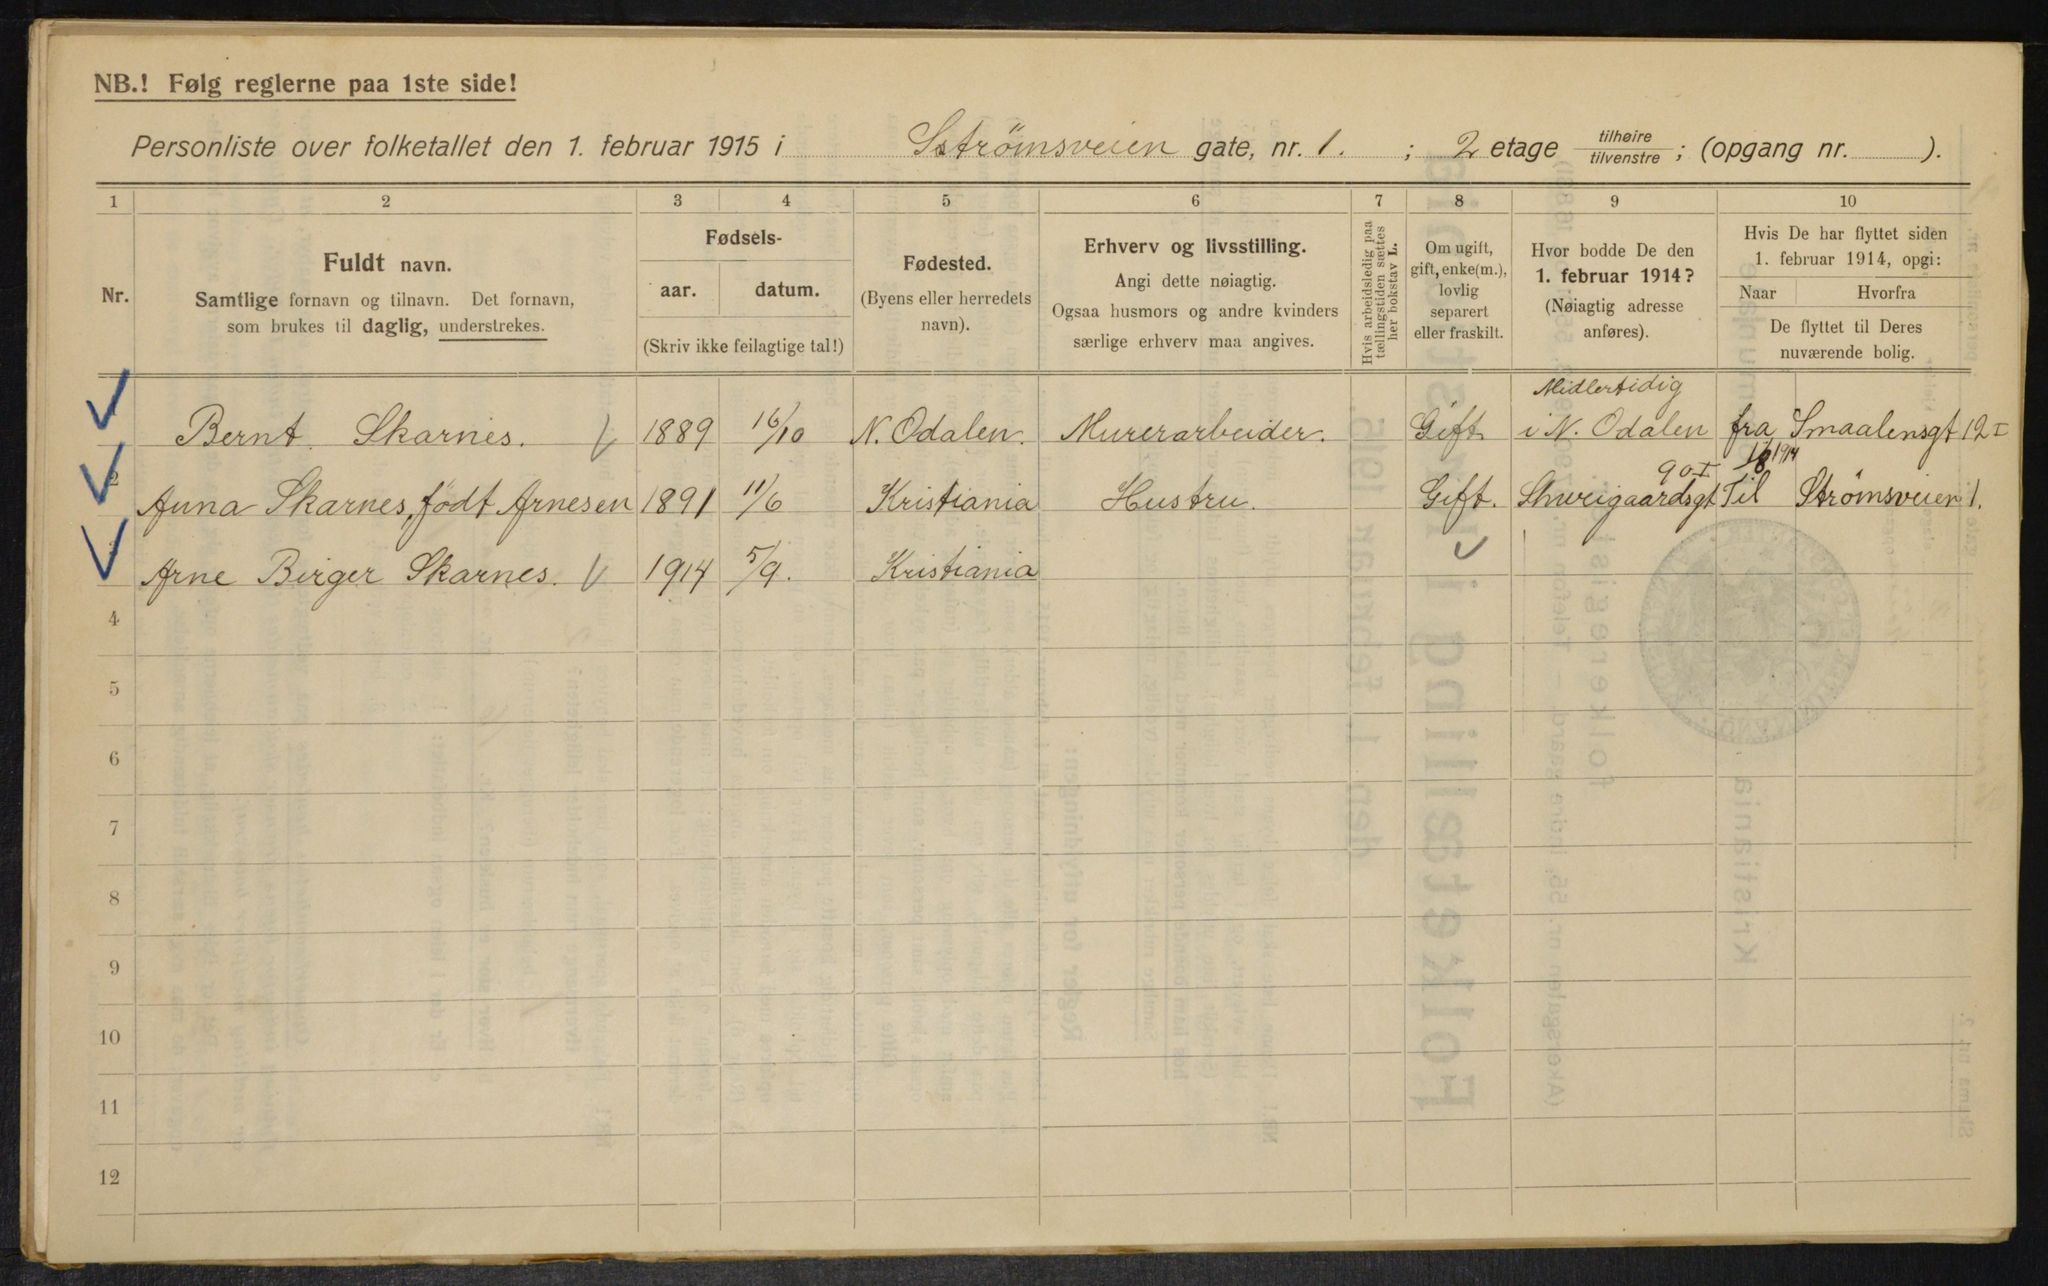 NB.! Følg reglerne paa 1ste side!
Personliste over folketallet den 1. februar 1915 i Sströmsveien gate, nr. 1. ; 2 etage tilhøire / tilvenstre ; (opgang nr. ).
1 2 3 4 5 6 7 8 9 10
Nr.
Fuldt navn.
Samtlige fornavn og tilnavn. Det fornavn,
som brukes til daglig, understrekes.
Fødsels-
aar. datum.
(Skriv ikke feilagtige tal!)
Fødested.
(Byens eller herredets
navn).
Erhverv og livsstilling.
Angi dette nøiagtig.
Ogsaa husmors og andre kvinders
særlige erhverv maa angives.
Hvis arbeidsledig paa
tællingstiden sættes
her bokstav L.
Om ugift,
gift, enke(m.),
lovlig
separert
eller fraskilt.
Hvor bodde De den
1. februar 1914?
(Nøiagtig adresse
anføres).
Hvis De har flyttet siden
1. februar 1914, opgi:
Naar Hvorfra
De flyttet til Deres
nuværende bolig.
Midlertidig
Bernt Skarnes. 1889 16/10 N. Odalen. Murerarbeider. Gift i N. Odalen fra Smaalensgt 12 I
90 I 1914
2 Anna Skarnes, födt Arnesen 1891 11/6 Kristiania Hustru. Gift. Shweigaardsgt Til Strömsveien 1.
Arne Birger Skarnes. 1914 5/9. Kristiania
4
5
6
7
8
9
10
11
12